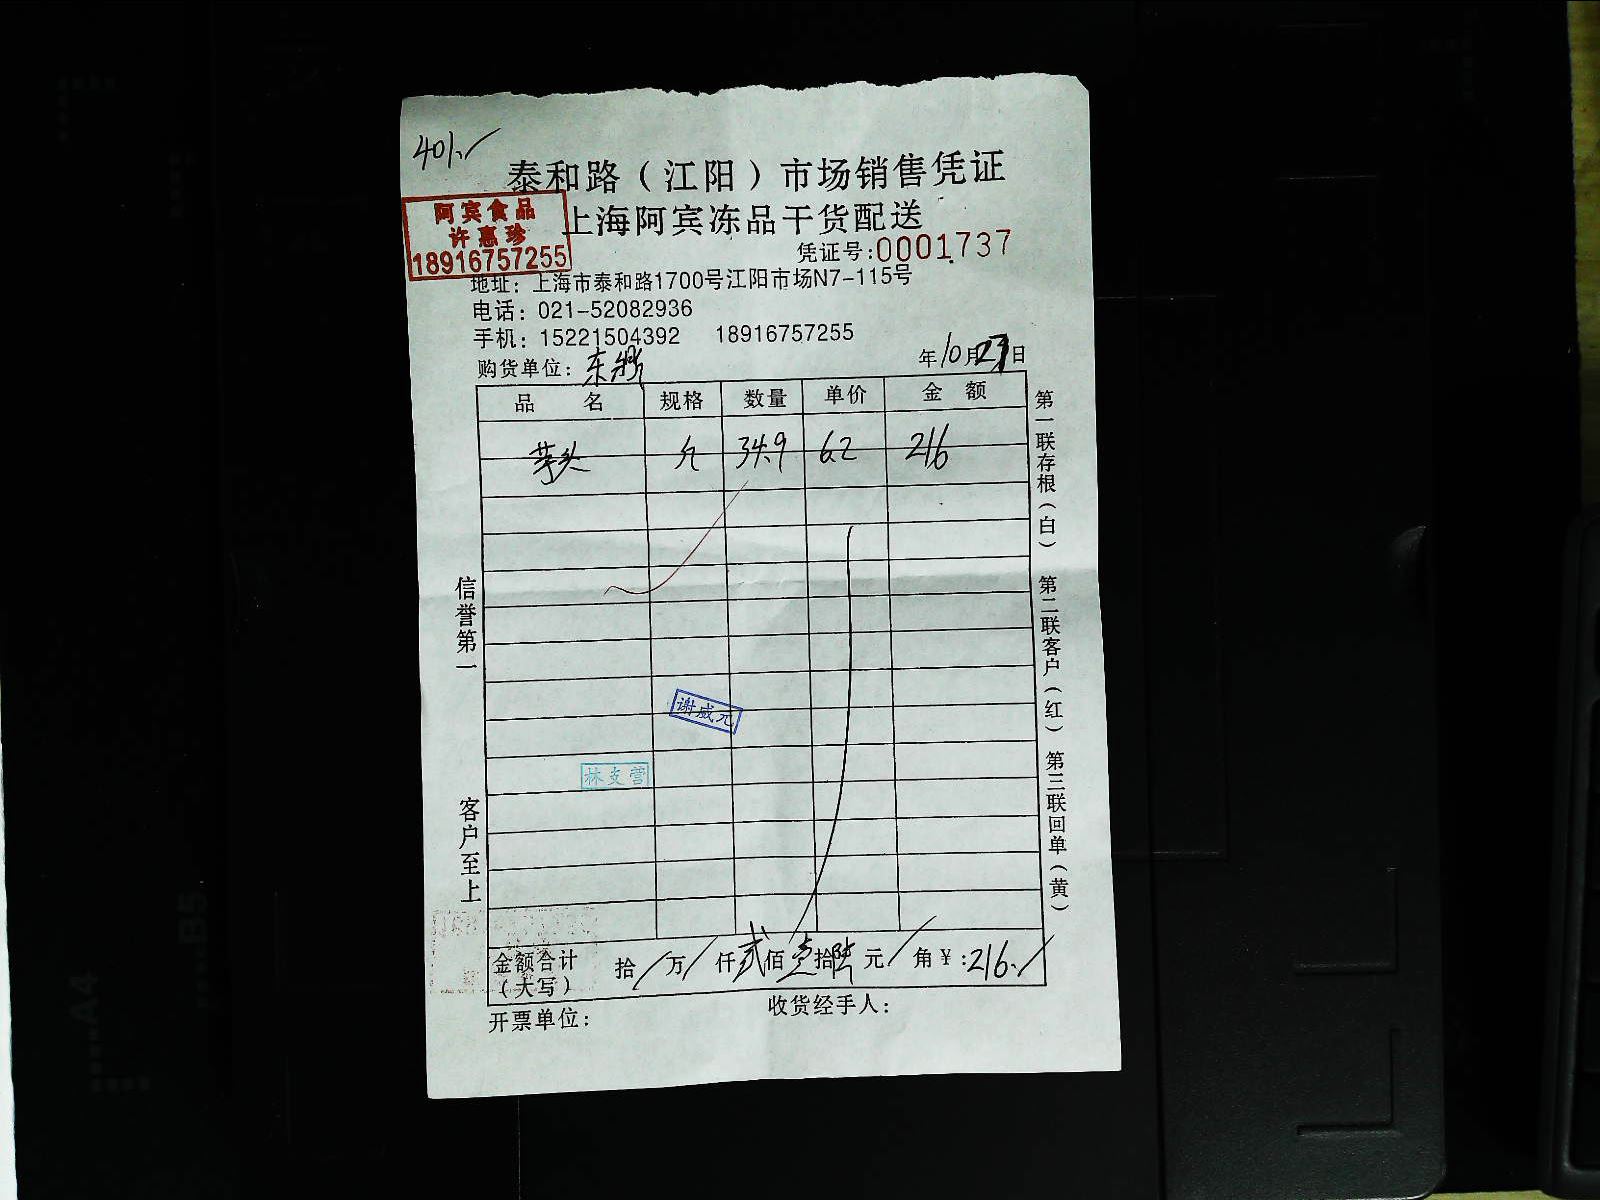 401.
泰和路（江阳）市场销售凭证
上海阿宾冻品干货配送
阿宾食品
许惠珍
18916757255
凭证号:0001737
地址：上海市泰和路1700号江阳市场N7-115号
电话：021-52082936
手机：15221504392 18916757255
购货单位：东
年10月27日
品 名 规格 数量 单价 金 额
芋头 34.9 6.2 216
第一联存根（白） 第二联客户（红） 第三联回单（黄）
信誉第一
客户至上
谢威元
林支营
金额合计（大写） 拾/万/仟贰佰壹拾陆元/角¥:216./
开票单位： 收货经手人：